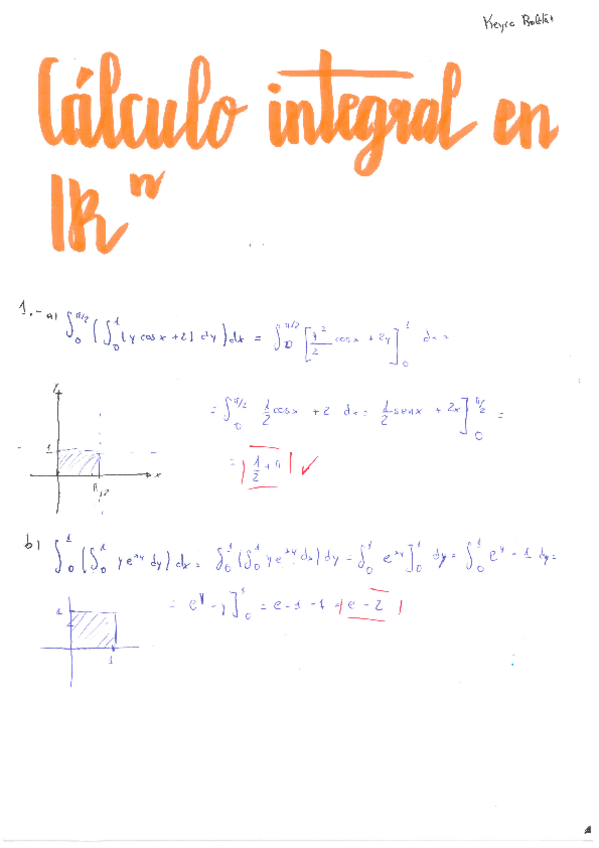 Cálculo integral en
ℝⁿ
1.- a) ∫₀^{π/2} (∫₀^1 (y cosx + 2) dy) dx = ∫₀^{π/2} [y²/2 cosx + 2y]₀^1 dx =
= ∫₀^{π/2} 1/2 cosx + 2 dx = 1/2 senx + 2x]₀^{π/2} =
y
1
π/2
x
= 1/2 + π ✓
b) ∫₀^1 (∫₀^1 y e^{xy} dy) dx = ∫₀^1 (∫₀^1 y e^{xy} dx) dy = ∫₀^1 e^{xy}]₀^1 dy = ∫₀^1 e^y - 1 dy =
= e^y - y]₀^1 = e - 1 - 1 = e - 2
1
1